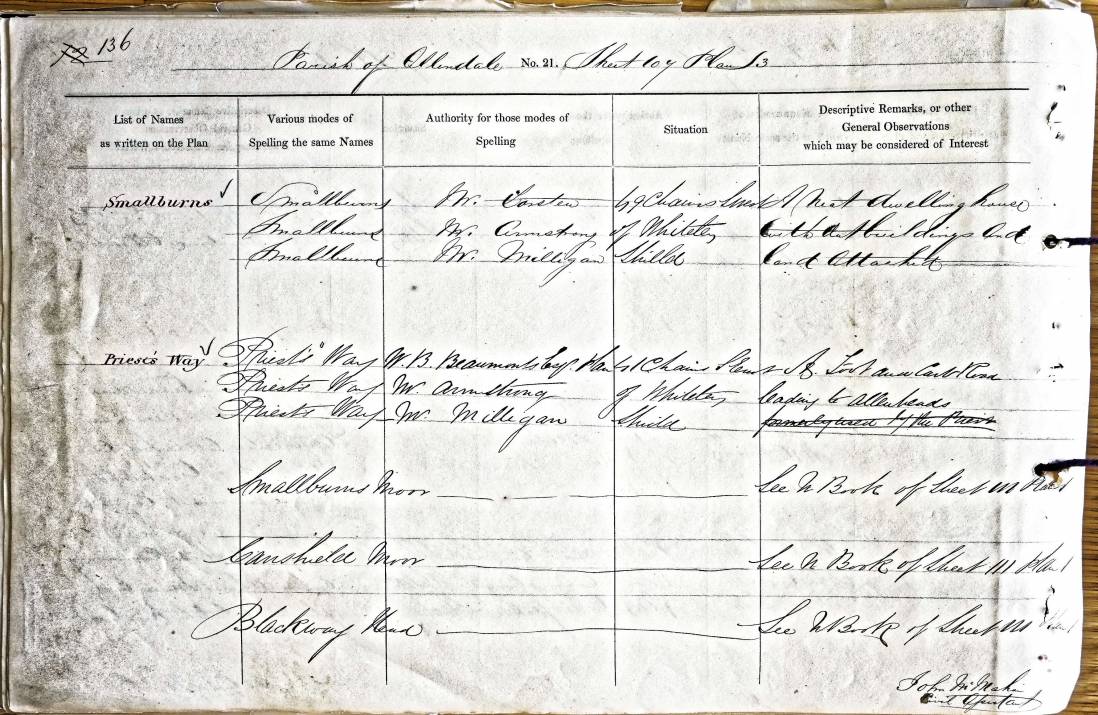 136
Parish of Allendale No. 21. Sheet 107 Plan 13
List of Names as written on the Plan
Various modes of Spelling the same Names
Authority for those modes of Spelling
Situation
Descriptive Remarks, or other General Observations which may be considered of Interest
Smallburns Smallburns Mr. Chains A Neat dwelling house
Smallburns Mr. Armstrong of Whiteley with Outbuildings And
Smallburns Mr. Milligan Shield land Attached
Priest's Way Priest's Way W. B. Beaumonts Esq. Plan Chains A Foot and Cart Road
Priests Way Mr. Armstrong of Whiteley leading to Allenheads
Priests Way Mr. Milligan Shield formerly used by the Priest
Smallburns Moor See N Book of Sheet 111 Plan 1
Moor See N Book of Sheet 111 Plan 1
Blackway Head See N Book of Sheet 111
John
Civil Assistant